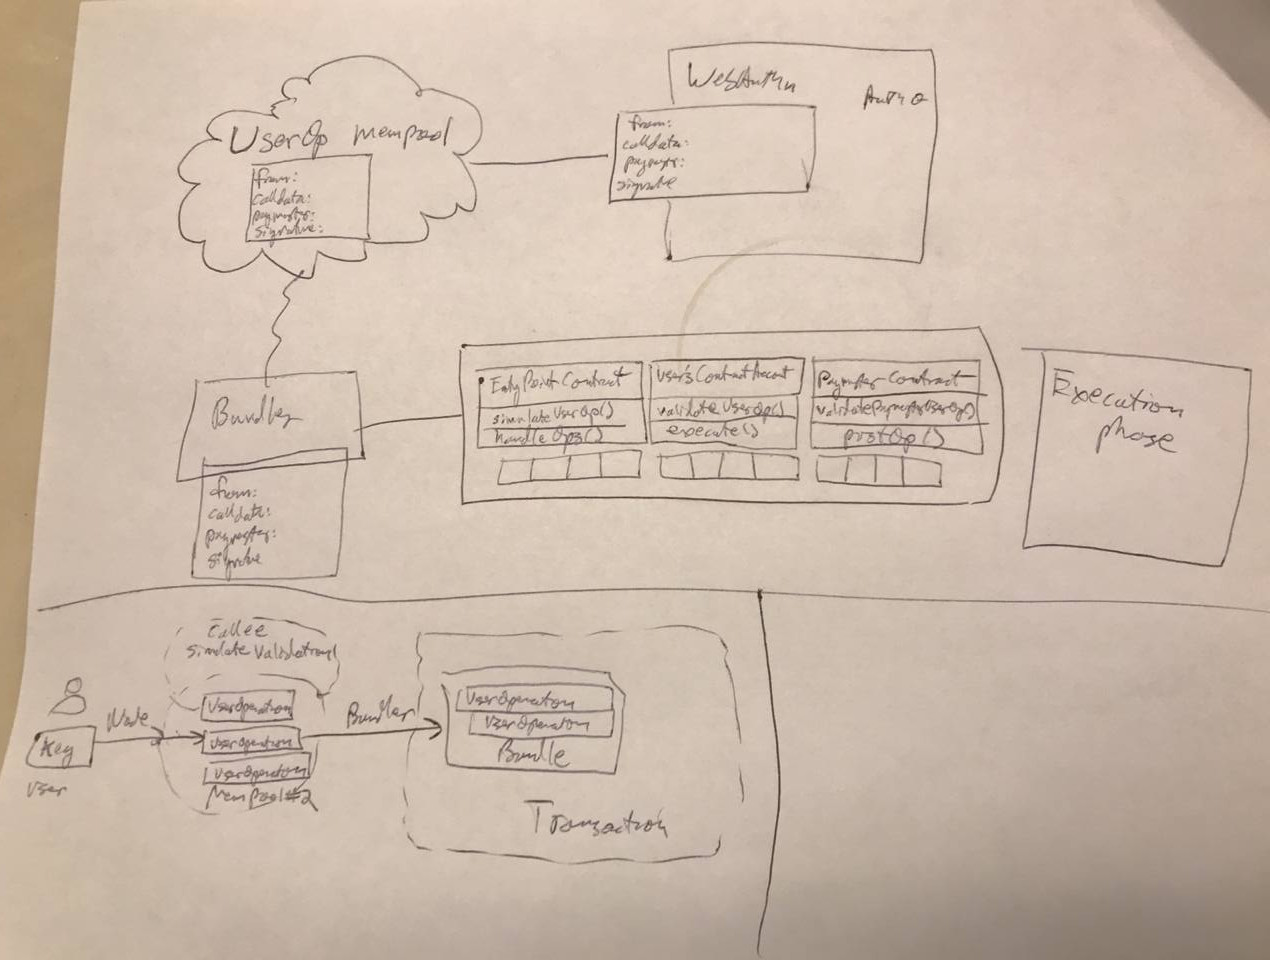 UserOp mempool
from:
calldata:
paymaster:
signature:
WebAuthn
Auth0
from:
calldata:
paymaster:
signature
Bundler
from:
calldata:
paymaster:
signature
Entry Point Contract
simulateUserOp()
handleOps()
User's Contract Account
validateUserOp()
execute()
Paymaster Contract
validatePaymasterUserOp()
postOp()
Execution
phase
Key
User
Node
Callee
simulate Validation
UserOperation
UserOperation
UserOperation
Mem Pool #2
Bundler
UserOperation
UserOperation
Bundle
Transaction